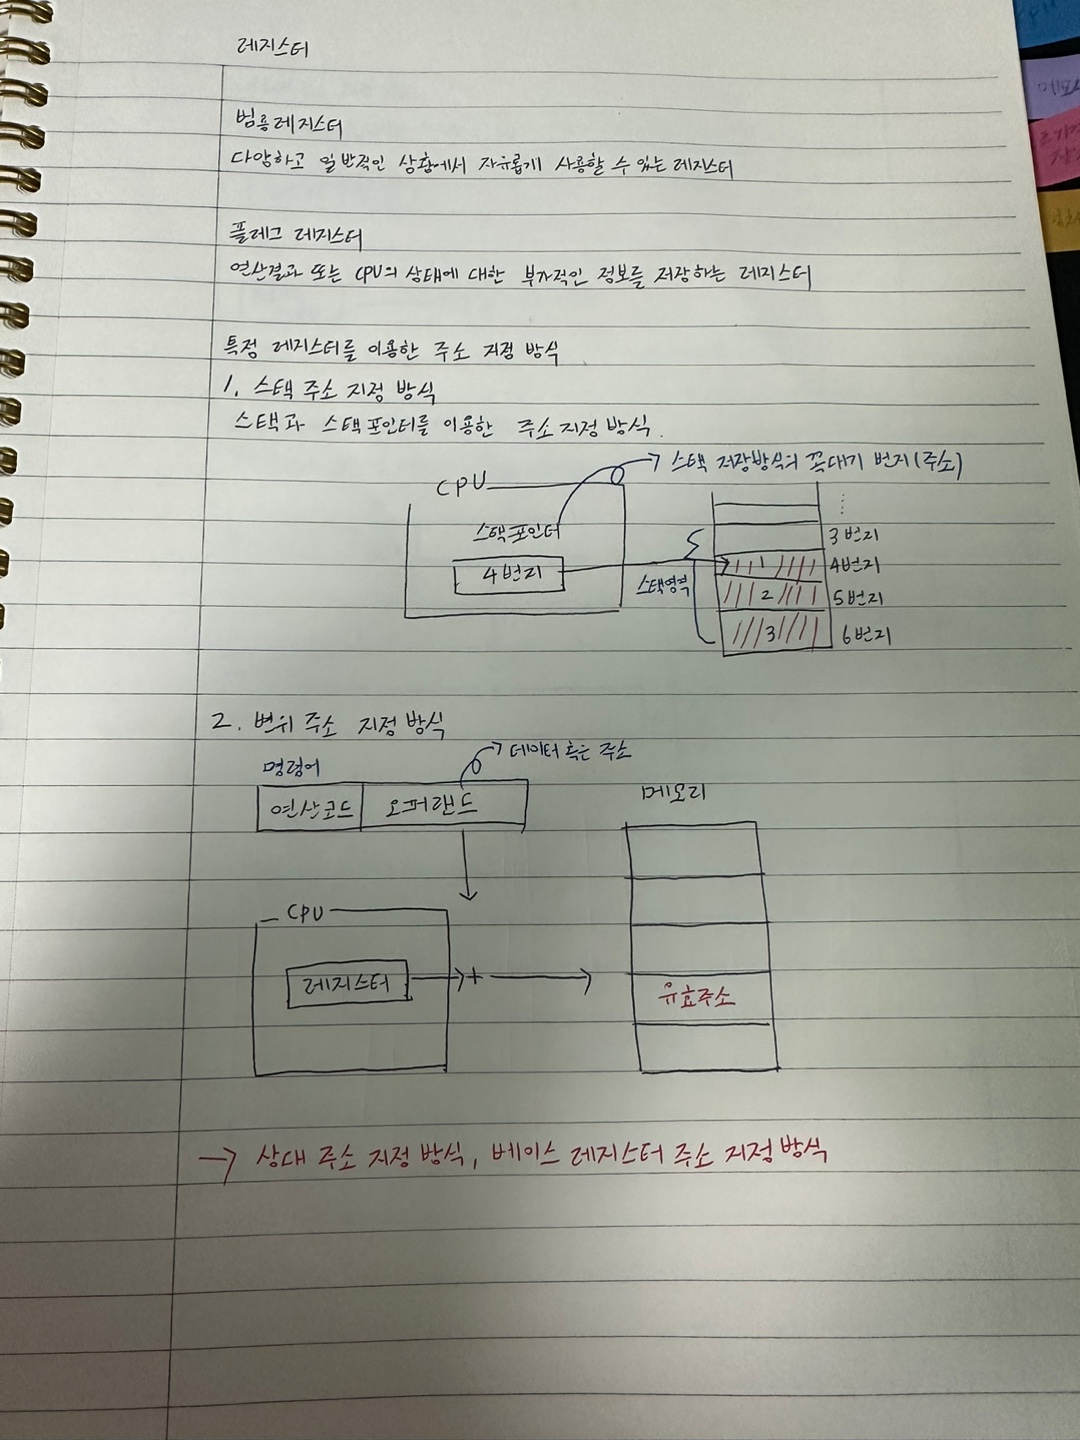 레지스터
범용레지스터
다양하고 일반적인 상황에서 자유롭게 사용할 수 있는 레지스터
플래그 레지스터
연산결과 또는 CPU의 상태에 대한 부가적인 정보를 저장하는 레지스터
특정 레지스터를 이용한 주소 지정 방식
1. 스택 주소 지정 방식
스택과 스택포인터를 이용한 주소 지정 방식.
→ 스택 저장방식의 꼭대기 번지(주소)
CPU
스택포인터
4번지
스택영역
⋮
3번지
1 4번지
2 5번지
3 6번지
2. 변위 주소 지정 방식
→ 데이터 혹은 주소
명령어
연산코드 오퍼랜드
메모리
CPU
레지스터 → + →
유효주소
→ 상대 주소 지정 방식, 베이스 레지스터 주소 지정 방식